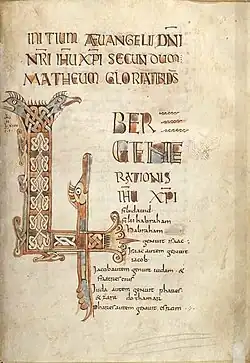 INITIUM AEUANGELII DNI
NRI IHU XPI SECUNDUM
MATHEUM GLORIATIBIDS
LIBER
GENE
RATIONIS
IHU XPI
filii dauid
filii habraham
habraham
genuit isaac
Isaac autem genuit
iacob
Jacob autem genuit iudam &
fratres eius
Juda autem genuit phares
& zara de thamar
phares autem genuit esrom